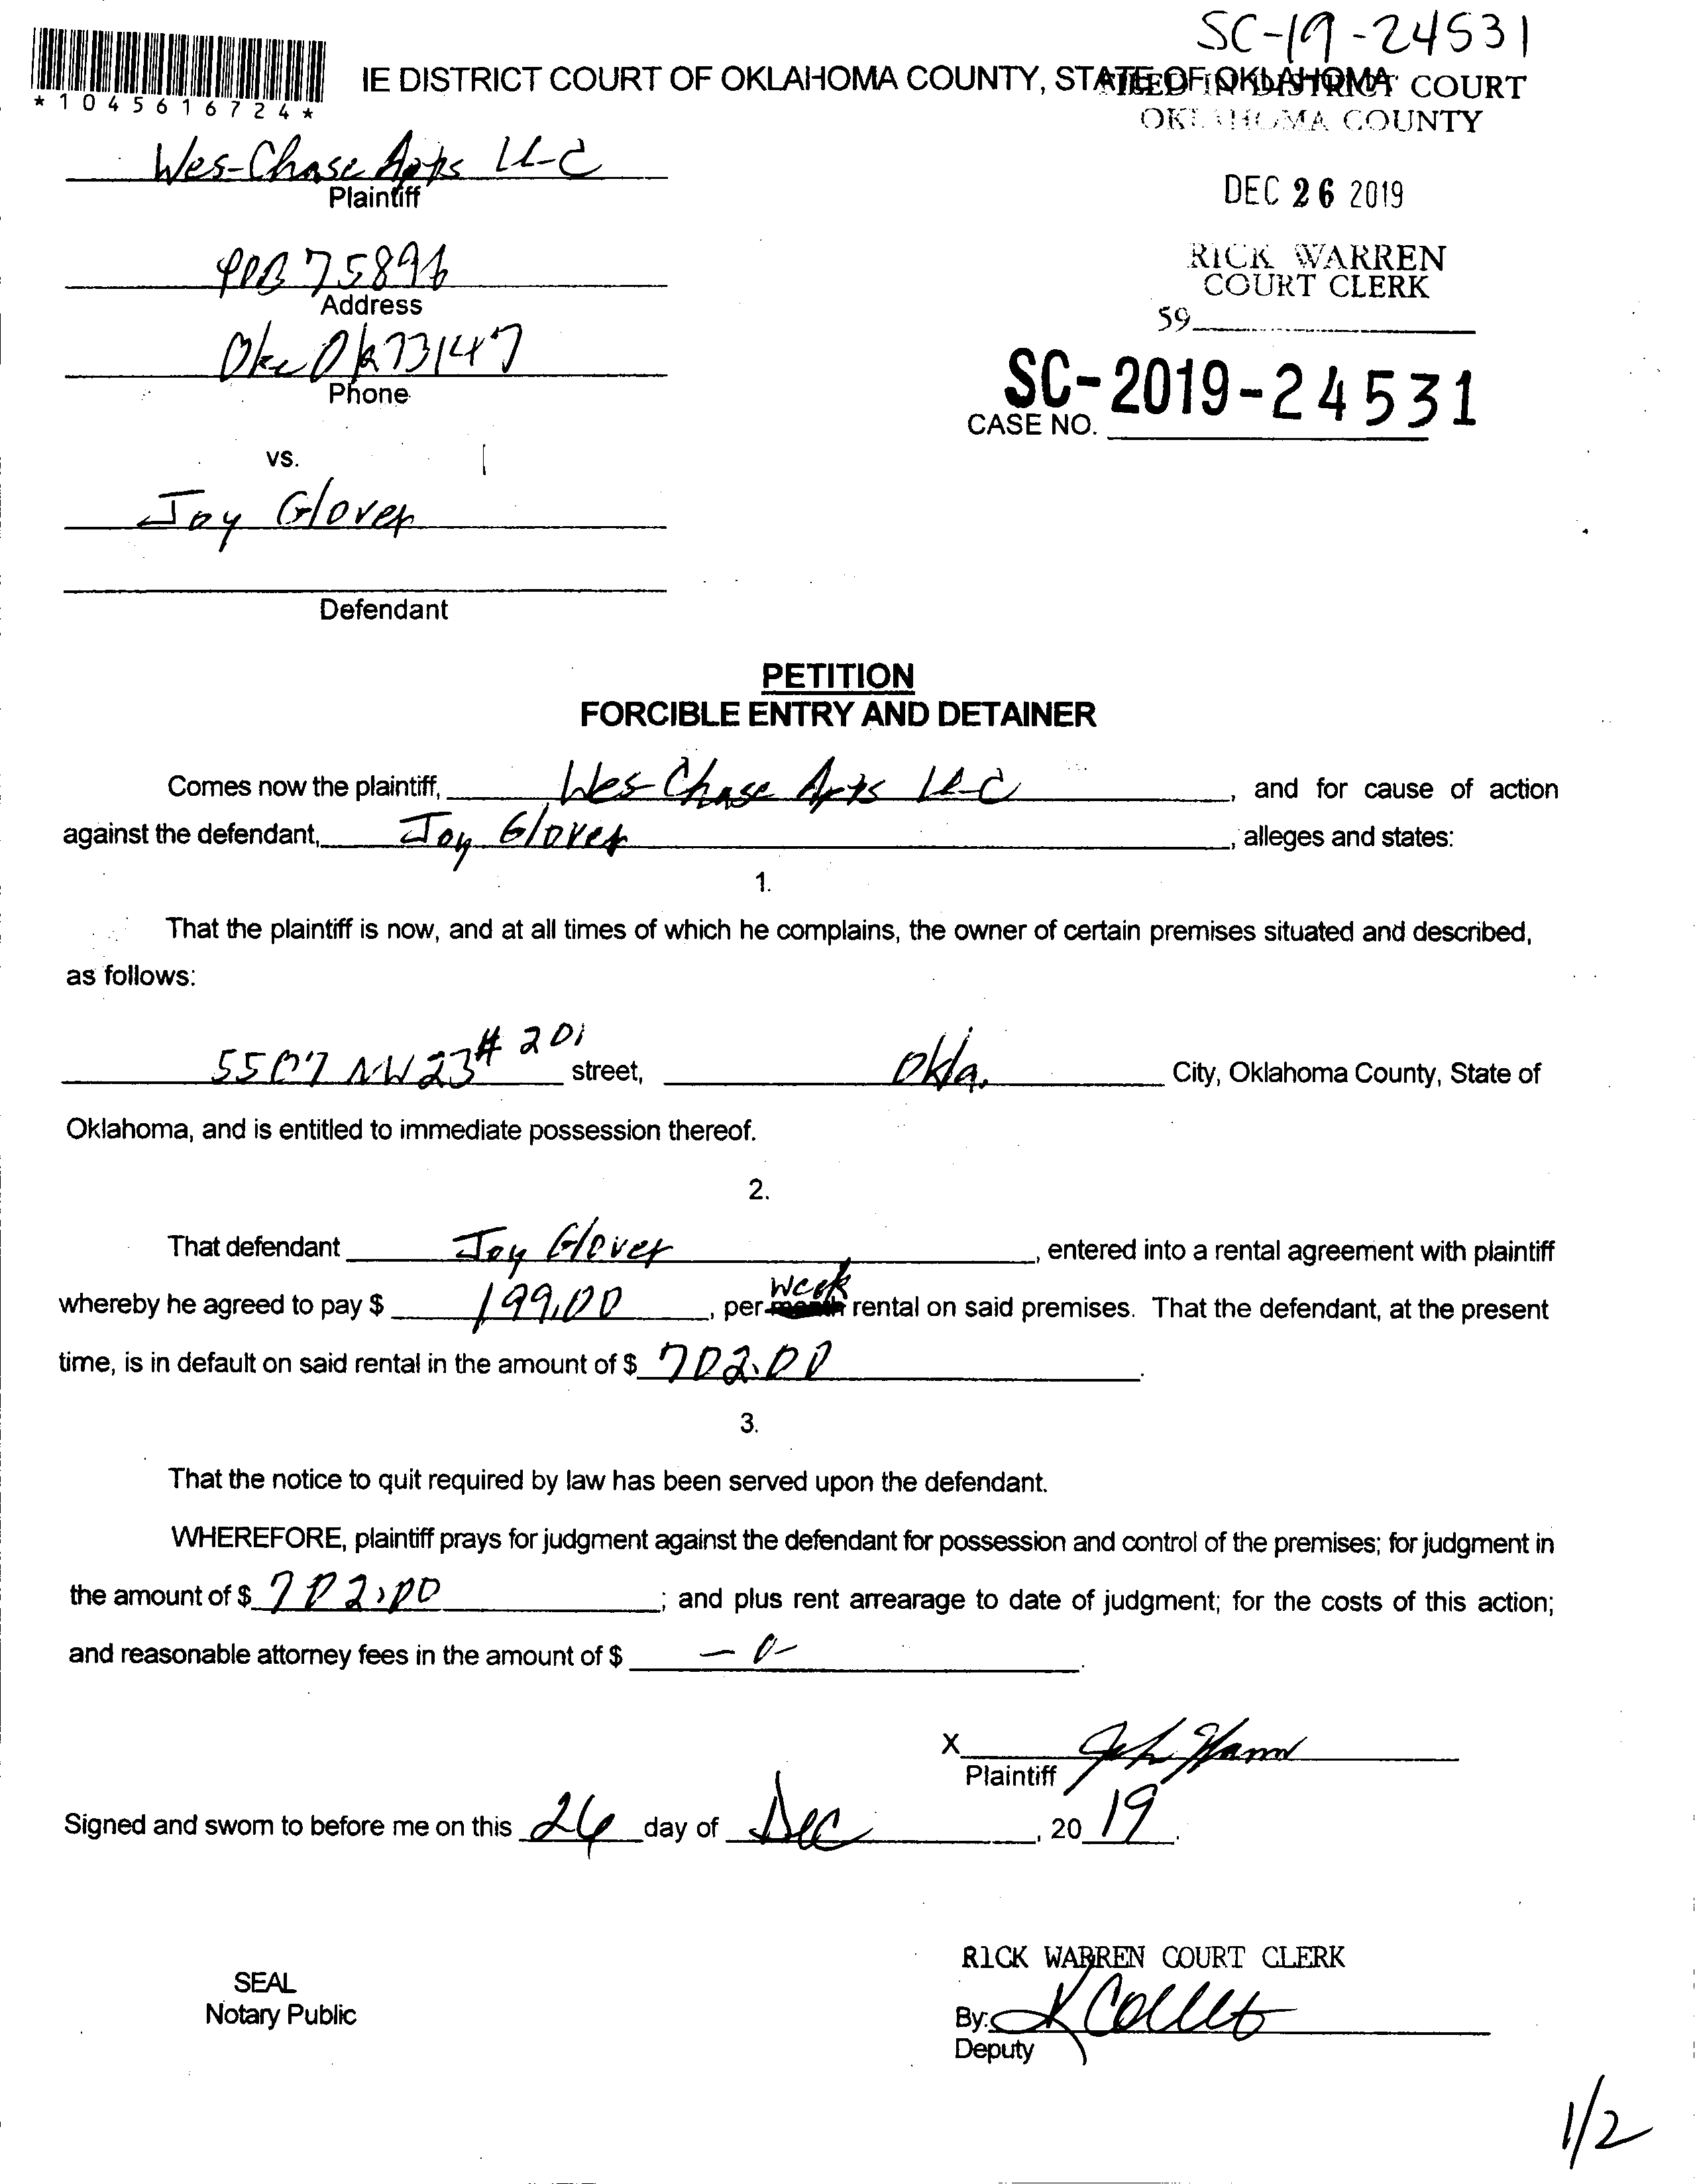 SC-19-24531
*1045616724*
IE DISTRICT COURT OF OKLAHOMA COUNTY, STATE OF OKLAHOMA
FILED IN DISTRICT COURT
OKLAHOMA COUNTY
Wes-Chase Apts LLC
Plaintiff
DEC 26 2019
POB 75896
Address
RICK WARREN
COURT CLERK
59
Okc Ok 73147
Phone
SC-2019-24531
CASE NO.
vs.
Joy Glover
Defendant
PETITION
FORCIBLE ENTRY AND DETAINER
Comes now the plaintiff, Wes-Chase Apts LLC, and for cause of action
against the defendant, Joy Glover, alleges and states:
1.
That the plaintiff is now, and at all times of which he complains, the owner of certain premises situated and described,
as follows:
5507 NW 23 # 201 street, Okla. City, Oklahoma County, State of
Oklahoma, and is entitled to immediate possession thereof.
2.
That defendant Joy Glover, entered into a rental agreement with plaintiff
week
whereby he agreed to pay $ 199.00, per month rental on said premises. That the defendant, at the present
time, is in default on said rental in the amount of $ 702.00.
3.
That the notice to quit required by law has been served upon the defendant.
WHEREFORE, plaintiff prays for judgment against the defendant for possession and control of the premises; for judgment in
the amount of $ 702.00; and plus rent arrearage to date of judgment; for the costs of this action;
and reasonable attorney fees in the amount of $ -0-.
X
Plaintiff
Signed and sworn to before me on this 26 day of Dec, 2019.
RICK WARREN COURT CLERK
SEAL
Notary Public
By:
Deputy
1/2